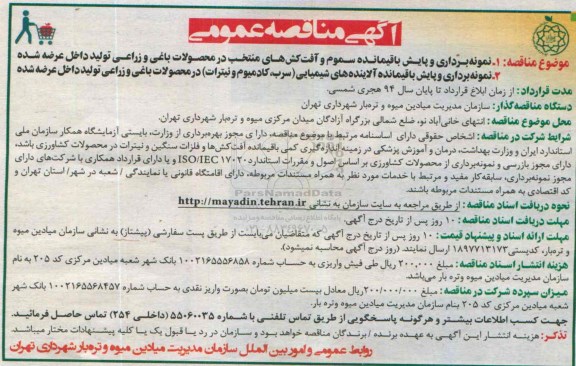 آگهی مناقصه عمومی
موضوع مناقصه: ۱- نمونه برداری و پایش باقیمانده سموم و آفت‌کش‌های منتخب در محصولات باغی و زراعی تولید داخل عرضه شده
۲- نمونه‌برداری و پایش باقیمانده آلاینده‌های شیمیایی (سرب، کادمیوم و نیترات) در محصولات باغی و زراعی تولید داخل عرضه شده
مدت قرارداد: از زمان ابلاغ قرارداد تا پایان سال ۹۴ هجری شمسی.
دستگاه مناقصه‌گذار: سازمان مدیریت میادین میوه و تره‌بار شهرداری تهران
محل موضوع مناقصه: انتهای خانی‌آباد نو، ضلع شمالی بزرگراه آزادگان میدان مرکزی میوه و تره‌بار شهرداری تهران.
شرایط شرکت در مناقصه: اشخاص حقوقی دارای اساسنامه مرتبط با موضوع مناقصه، دارای مجوز بهره‌برداری از وزارت، بایستی آزمایشگاه همکار سازمان ملی
استاندارد ایران و وزارت بهداشت، درمان و آموزش پزشکی در زمینه اندازه‌گیری کمی باقیمانده آفت‌کش‌ها و فلزات سنگین و نیترات در محصولات کشاورزی باشد،
دارای مجوز بازرسی و نمونه‌برداری از محصولات کشاورزی بر اساس اصول و مقررات استاندارد ISO/IEC ۱۷۰۲۰ و یا دارای قرارداد همکاری با شرکت‌های دارای
مجوز نمونه‌برداری، سابقه‌کار مفید و مرتبط با خدمات مورد نظر به همراه مستندات مربوطه، دارای اقامتگاه قانونی یا نمایندگی / شعبه در شهر/ استان تهران و
کد اقتصادی به همراه مستندات مربوطه باشند.
نحوه دریافت اسناد مناقصه: از طریق مراجعه به سایت سازمان به نشانی http://mayadin.tehran.ir
مهلت دریافت اسناد مناقصه: ۱۰ روز پس از تاریخ درج آگهی.
مهلت ارائه اسناد و پیشنهاد قیمت: ۱۰ روز پس از تاریخ درج آگهی که متقاضیان می‌بایست از طریق پست سفارشی (پیشتاز) به نشانی سازمان میادین میوه
و تره‌بار، کدپستی ۱۸۹۷۷۱۳۱۷۳ ارسال نمایند. (روز درج آگهی محاسبه نمیشود).
هزینه انتشار اسناد مناقصه: مبلغ ۲۰۰,۰۰۰ ریال طی فیش واریزی به حساب شماره ۱۰۰۲۱۶۵۵۵۶۸۵۸ بانک شهر شعبه میادین مرکزی کد ۲۰۵ به نام
سازمان مدیریت میادین میوه وتره بار می‌باشد.
میزان سپرده شرکت در مناقصه: مبلغ ۲۰۰/۰۰۰/۰۰۰ ریال معادل بیست میلیون تومان بصورت واریز نقدی به حساب شماره ۱۰۰۲۱۶۵۵۶۸۴۵۷ بانک شهر
شعبه میادین مرکزی کد ۲۰۵ بنام سازمان مدیریت میادین میوه و تره بار.
جهت کسب اطلاعات بیشتر و هرگونه پاسخگویی از طریق تماس تلفنی با شماره ۵۵۰۶۰۰۳۵ (داخلی ۲۵۴) تماس حاصل فرمائید.
تذکر: هزینه انتشار این آگهی به عهده برنده / برندگان مناقصه خواهد بود و سازمان در رد یا قبول یک یا کلیه پیشنهادات مختار میباشد.
روابط عمومی و امور بین الملل سازمان مدیریت میادین میوه و تره‌بار شهرداری تهران
ParsNamadData